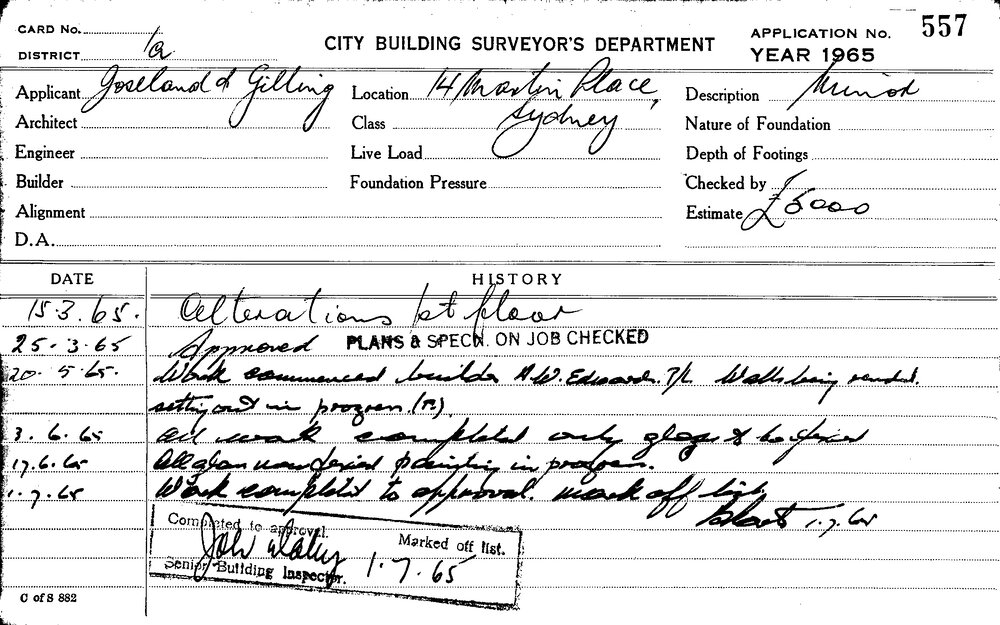 CARD No. APPLICATION No. 557
DISTRICT 1a CITY BUILDING SURVEYOR'S DEPARTMENT YEAR 1965
Applicant Joseland & Gilling Location 14 Martin Place, Sydney Description Minor
Architect Class Nature of Foundation
Engineer Live Load Depth of Footings
Builder Foundation Pressure Checked by
Alignment Estimate £5000
D.A.
DATE HISTORY
15.3.65. Alterations 1st floor
25-3-65 Approved PLANS & SPECN. ON JOB CHECKED
20.5.65. Work commenced builder H.W. Edwards P/L Walls being
setting out in progress.
3.6.65 All work completed only glass to be fixed
17.6.65 All glass now fixed painting in progress.
1.7.65 Work completed to approval. mark off list
1.7.65
Completed to approval. Marked off list.
1.7.65
Senior Building Inspector.
C of S 882